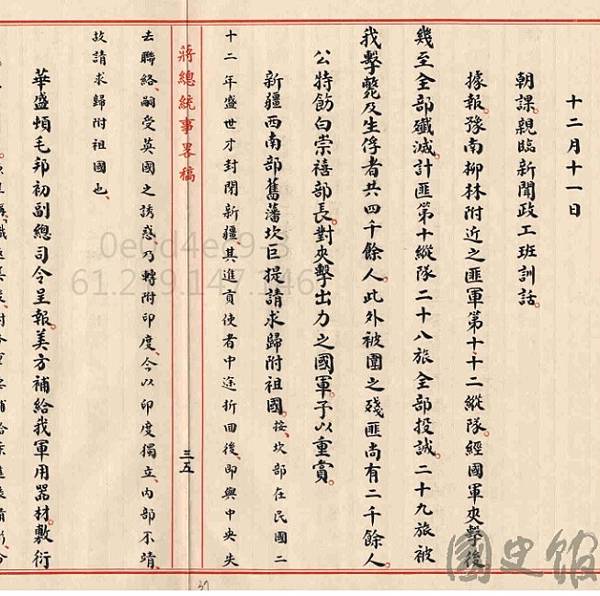 十二月十一日
朝課。親臨新聞政工班訓話。
據報。豫南柳林附近之匪軍第十二縱隊。經國軍夾擊後
幾至全部殲滅。計匪第十縱隊二十八旅全部投誠。二十九旅被
我擊斃及生俘者共四千餘人。此外被圍之殘匪尚有二千餘人。
公特飭白崇禧部長。對夾擊出力之國軍。予以重賞。
新疆西南部舊藩坎巨提請求歸附祖國。按、坎部在民國二
十二年盛世才封閉新疆其進貢使者中途折回後、即與中央失
蔣總統事畧稿
三五
去聯絡、嗣受英國之誘惑、乃轉附印度、今以印度獨立、內部不靖、
故請求歸附祖國也、
華盛頓毛邦初副總司令呈報美方補給我軍用器材敷衍
37
國史館